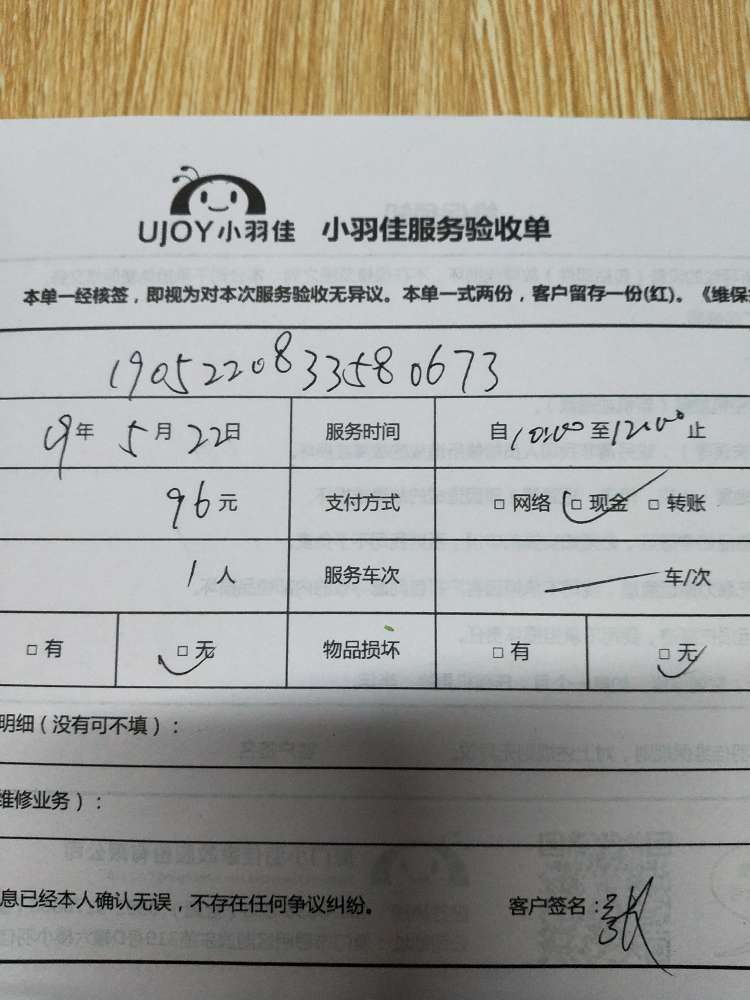 UJOY小羽佳 小羽佳服务验收单
本单一经核签，即视为对本次服务验收无异议。本单一式两份，客户留存一份(红)。《维保
190522083358 0673
19年 5月 22日 服务时间 自10:00至12:00止
96元 支付方式 □ 网络 □ 现金 □ 转账
1人 服务车次 车/次
□ 有 □ 无 物品损坏 □ 有 □ 无
明细（没有可不填）：
维修业务）：
息已经本人确认无误，不存在任何争议纠纷。 客户签名：张